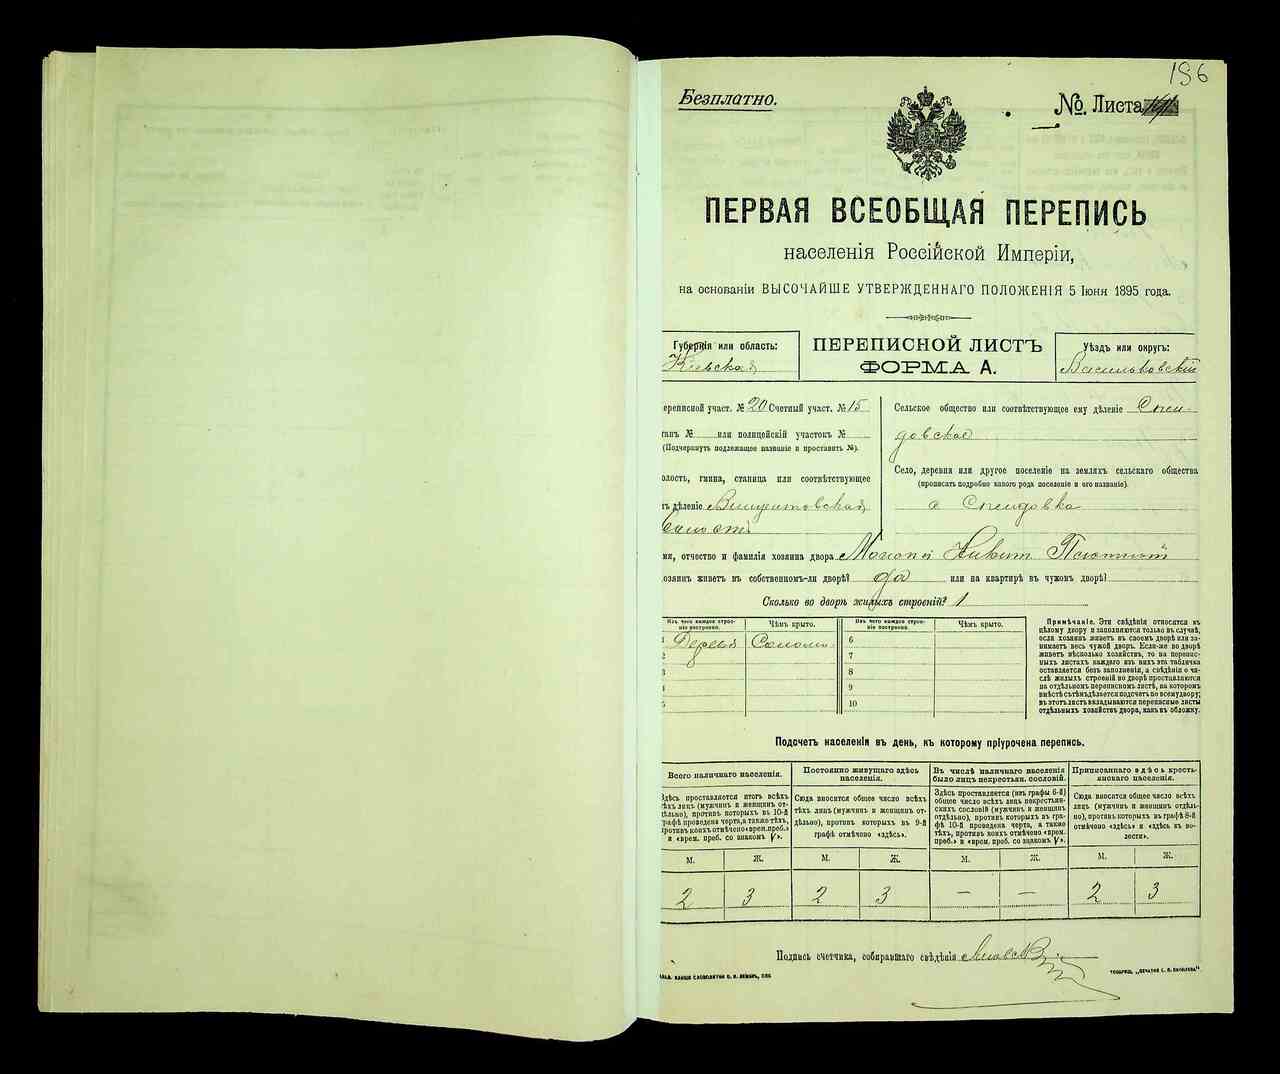 196
Безплатно.
№. Листа
ПЕРВАЯ ВСЕОБЩАЯ ПЕРЕПИСЬ
населенія Россійской Имперіи,
на основаніи ВЫСОЧАЙШЕ УТВЕРЖДЕННАГО ПОЛОЖЕНІЯ 5 Іюня 1895 года.
Губернія или область:
Кіевская
ПЕРЕПИСНОЙ ЛИСТЪ
ФОРМА А.
Уѣздъ или округъ:
Васильковскій
ереписной участ. № 20 Счетный участ. № 15
танъ № или полицейскій участокъ №
(Подчеркнуть подлежащее названіе и проставить №).
олость, гмина, станица или соотвѣтствующее
ъ дѣленіе Винцентовская
Сельское общество или соотвѣтствующее ему дѣленіе
довское
Село, деревня или другое поселеніе на земляхъ сельскаго общества
(прописать подробно какого рода поселеніе и его названіе).
мя, отчество и фамилія хозяина двора Никит
озяинъ живетъ въ собственномъ-ли дворѣ? да или на квартирѣ въ чужомъ дворѣ?
Сколько во дворѣ жилыхъ строеній? 1
Изъ чего каждое строеніе построено.
Чѣмъ крыто.
Изъ чего каждое строеніе построено.
Чѣмъ крыто.
1 Дерева Солома 6
2 7
3 8
4 9
5 10
Примѣчаніе. Эти свѣдѣнія относятся къ
цѣлому двору и заполняются только въ случаѣ,
если хозяинъ живетъ въ своемъ дворѣ или занимаетъ
весь чужой дворъ. Если-же во дворѣ
живетъ нѣсколько хозяйствъ, то на переписныхъ
листахъ каждаго изъ нихъ эта табличка
оставляется безъ заполненія, а свѣдѣнія о числѣ
жилыхъ строеній во дворѣ проставляются
на отдѣльномъ переписномъ листѣ, на которомъ
вмѣстѣ съ тѣмъ дѣлается подсчетъ по всему двору;
въ этотъ листъ вкладываются переписные листы
отдѣльныхъ хозяйствъ двора, какъ въ обложку.
Подсчетъ населенія въ день, къ которому пріурочена перепись.
Всего наличнаго населенія.
Здѣсь проставляется итогъ всѣхъ
тѣхъ лицъ (мужчинъ и женщинъ отдѣльно),
противъ которыхъ въ 10-й
графѣ проведена черта, а также тѣхъ,
противъ коихъ отмѣчено «врем. преб.»
и «врем. преб. со знакомъ V».
Постоянно живущаго здѣсь
населенія.
Сюда вносится общее число всѣхъ
тѣхъ лицъ (мужчинъ и женщинъ отдѣльно),
противъ которыхъ въ 9-й
графѣ отмѣчено «здѣсь».
Въ числѣ наличнаго населенія
было лицъ некрестьян. сословій.
Здѣсь проставляется (изъ графы 6-й)
общее число всѣхъ лицъ некрестьянскихъ
сословій (мужчинъ и женщинъ
отдѣльно), противъ которыхъ въ графѣ
10-й проведена черта, а также
тѣхъ, противъ коихъ отмѣчено «врем.
преб.» и «врем. преб. со знакомъ V».
Приписаннаго здѣсь крестьянскаго
населенія.
Сюда вносится общее число всѣхъ
лицъ (мужчинъ и женщинъ отдѣльно),
противъ которыхъ въ графѣ 8-й
отмѣчено «здѣсь» и «здѣсь въ волости».
М. Ж. М. Ж. М. Ж. М. Ж.
2 3 2 3 — — 2 3
Подпись счетчика, собиравшаго свѣдѣнія